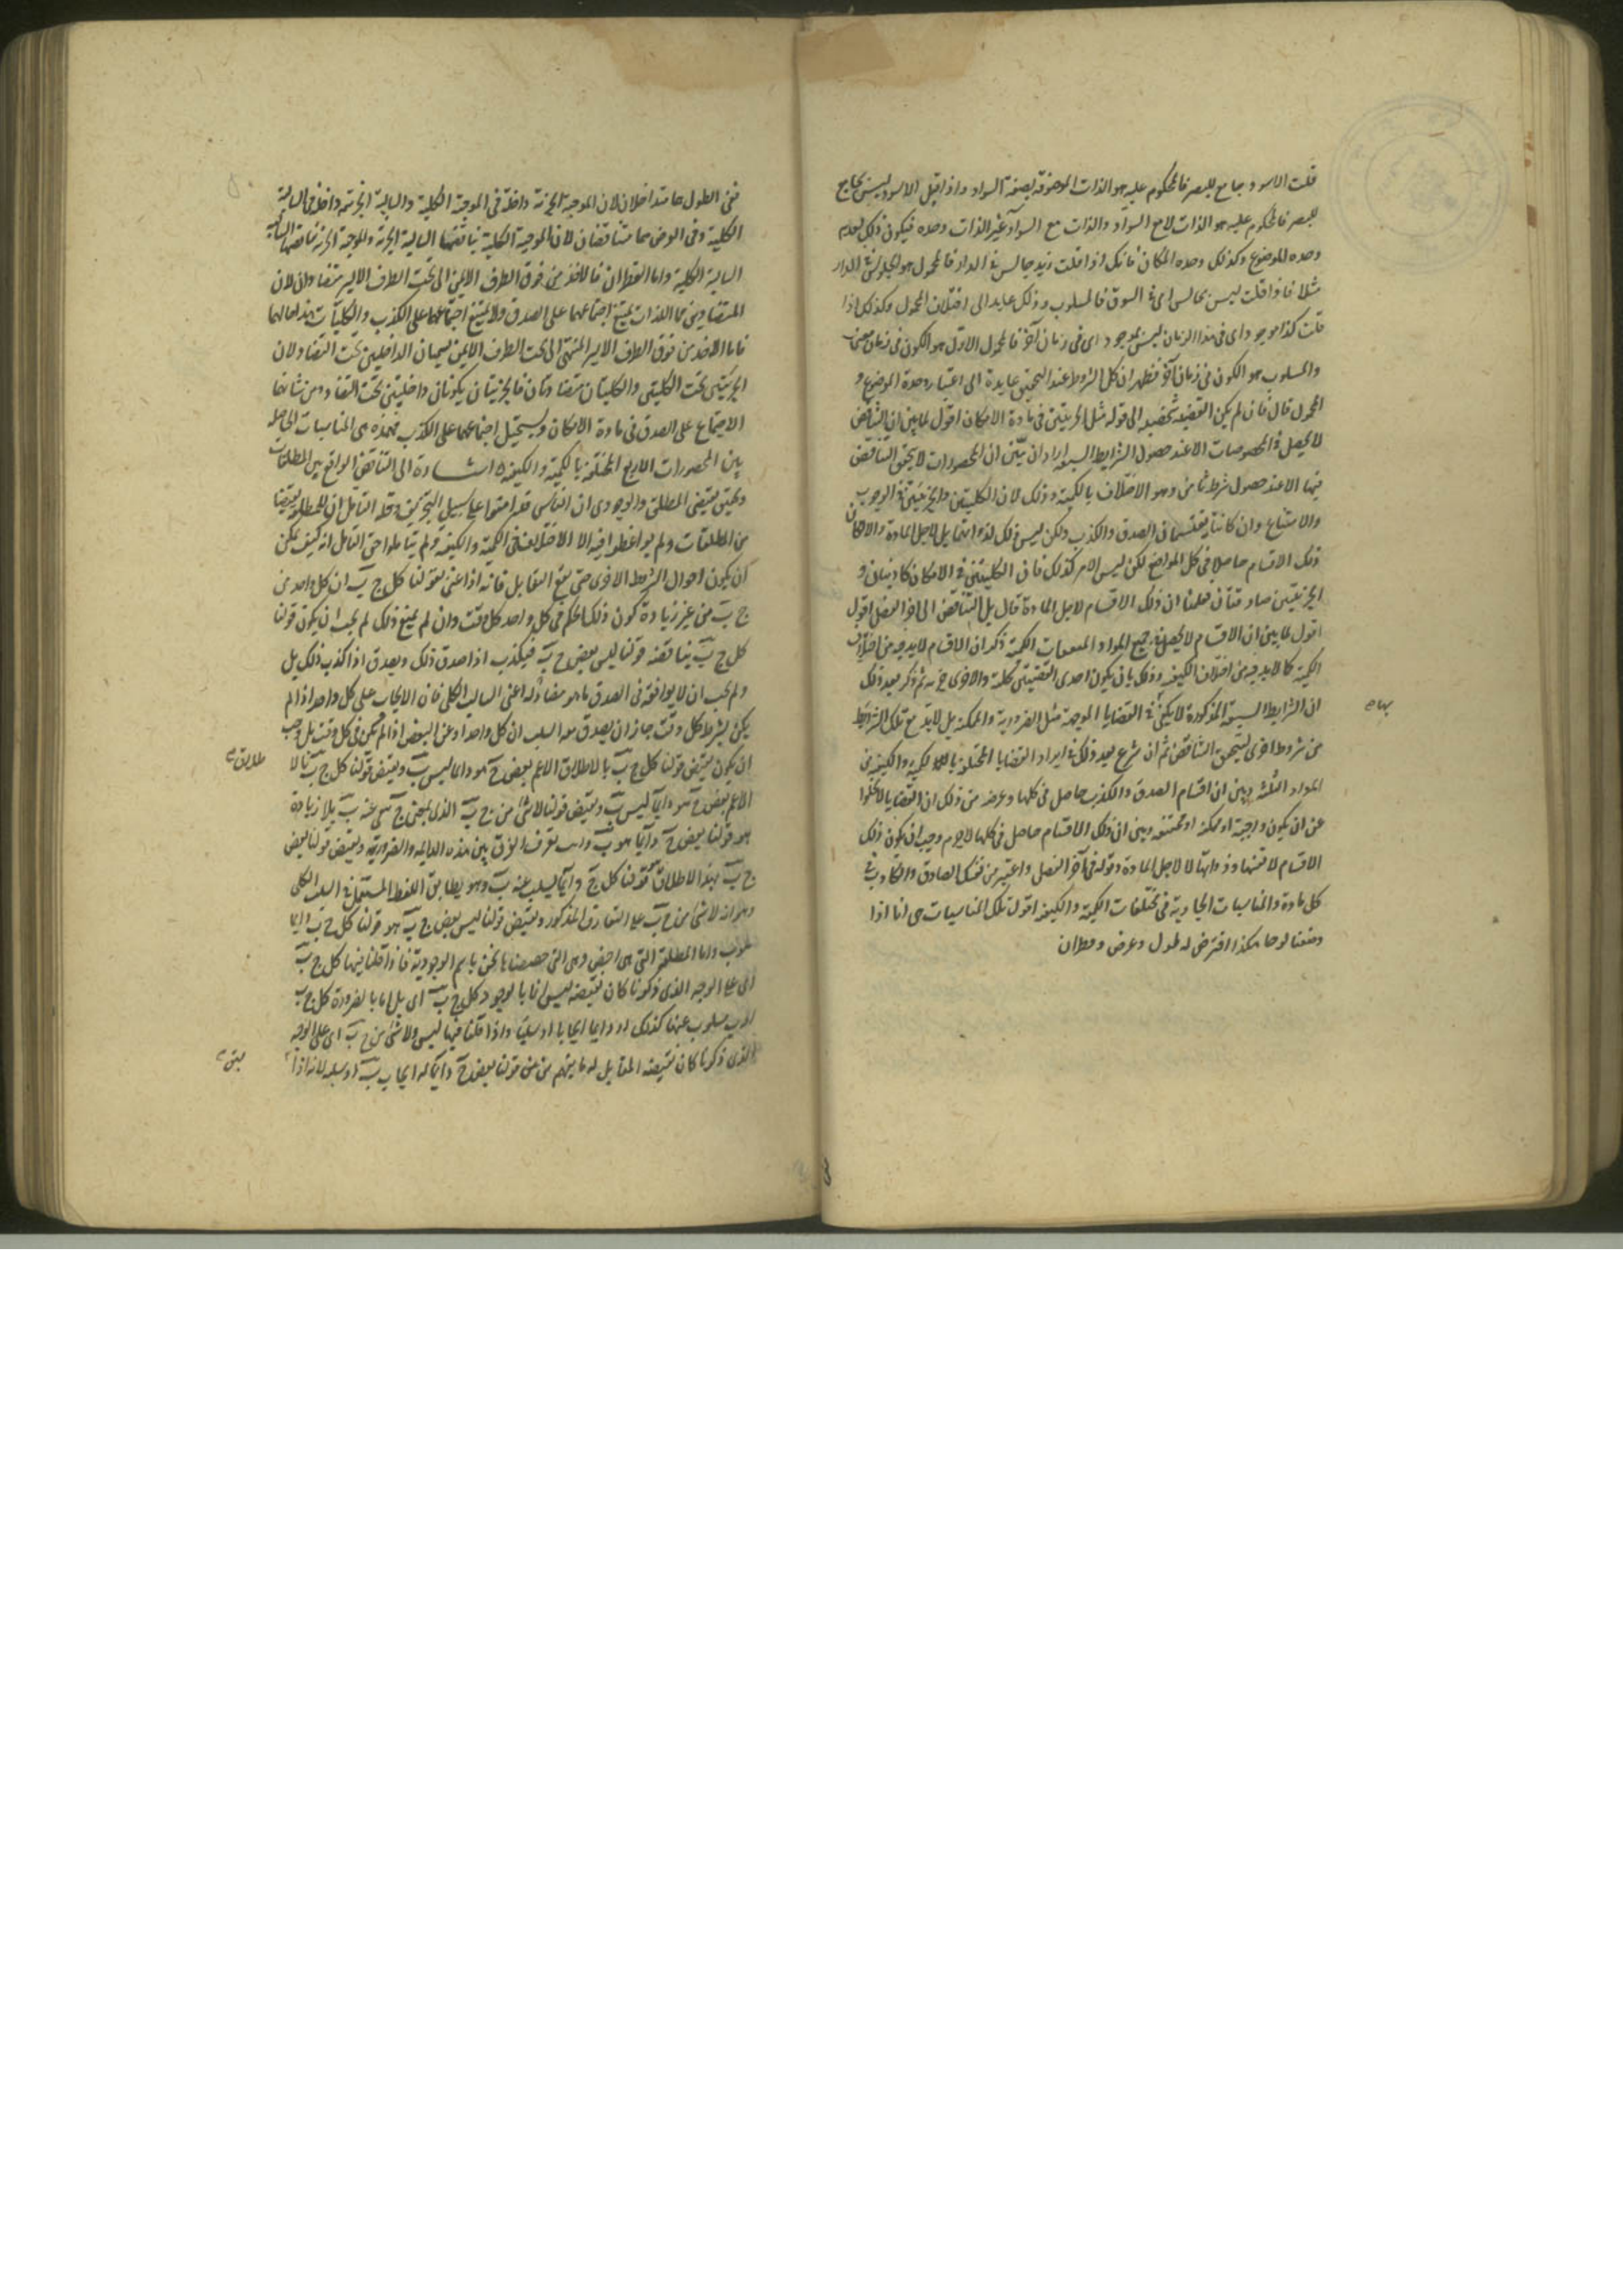 قلت الاسود جامع للبصر فالمحكوم عليه هو الذات الموصوفة بصفة السواد واذا قيل الاسود ليس بجامع
للبصر فالمحكوم عليه هو الذات لا مع السواد والذات مع السواد غير الذات وحده فيكون ذلك لعدم
وحده الموضوع وكذلك وحده المكان فانك اذا قلت زيد جالس في الدار فالمحمول هو الجلوس في الدار
مثلا فاذا قلت ليس بجالس اى في السوق فالمسلوب وذلك عايد الى اختلاف المحمول وكذلك اذا
قلت كذا موجود اى في هذا الزمان ليس بموجود اى في زمان آخر فالمحمول الاول هو الكون في زمان معين
والمسلوب هو الكون في زمان آخر فظهر ان كل الشروط عند التحقيق عايدة الى اعتبار وحدة الموضوع و
المحمول قال فان لم يكن القضيه شخصيه الى قوله مثل الجزئيتين في مادة الامكان اقول لما بين ان التناقض
لا يحصل في المخصوصات الا عند حصول الشرايط السبعه اراد ان يبين ان المحصورات لا يتحقق التناقض
فيها الا عند حصول شرط ثامن وهو الاختلاف بالكمية وذلك لان الكليتين والجزئيتين في الوجوب
والامتناع وان كانتا يقتسمان الصدق والكذب ولكن ليس ذلك لذاتهما بل لاجل المادة والا لكان
ذلك الاقسام حاصلا في كل المواضع لكن ليس الامر كذلك فان الكليتين في الامكان كاذبتان و
الجزئيتين صادقتان فعلمنا ان ذلك الاقسام لاجل المادة قال بل التناقض الى اخر الفصل اقول
اقول لما بين ان الاقسام لا يحصل في جميع المواد الكمية ذكر ان الاقسام لابد فيه من اختلاف
الكمية كما لابد فيه من اختلاف الكيفيه وذلك بان يكون احدى القضيتين كلية والاخرى جزئيه ثم ذكر بعد ذلك
ان الشرايط السبعة المذكورة لا يكفي في القضايا الموجهة مثل الضرورية والممكنة بل لابد مع تلك الشرايط
من شروط اخرى ليتحقق التناقض ثم ان شرع بعد ذلك في ايراد القضايا المختلفة بالكمية والكيفيه في
المواد الثلثه وبين ان اقسام الصدق والكذب حاصل في كلها وغرضه من ذلك ان القضايا لا تخلوا
عن ان يكون واجبة او ممكنة او ممتنعه وبين ان ذلك الاقتسام حاصل في كلها لا جرم وجب ان يكون ذلك
الاقسام لانفسها وذواتها لا لاجل المادة وقوله في آخر الفصل واعتبر من نفسك الصادق والكاذب في
كل مادة والمناسبات الجارية في مختلفات الكمية والكيفيه اقول تلك المناسبات هى انا اذا
وضعنا لوحا هكذا افترض له طول وعرض وقطران
بهاء
ففى الطول هما متداخلان لان الموجبة الجزئية داخلة في الموجبة الكلية والسالبة الجزئية داخلة في السالبة
الكلية وفى العرض هما متناقضان لان الموجبة الكلية يناقضها السالبة الجزئية والموجبة الجزئية يناقضها السالبة
السالبة الكلية واما القطران فالاخذ من فوق الطرف الايمن الى تحت الطرف الايسر متضادان لان
المتضادين هما اللذان يمتنع اجتماعهما على الصدق ولا يمتنع اجتماعهما على الكذب والكليات هذا حالها
فاما الاخذ من فوق الطرف الايسر المنتهى الى تحت الطرف الايمن يسميان الداخلتين تحت التضاد لان
الجزئيتين تحت الكليتين والكليتان متضادتان فالجزئيتان يكونان داخلتين تحت التضاد ومن شانهما
الاجتماع على الصدق في مادة الامكان ويستحيل اجتماعهما على الكذب فهذه هى المناسبات الحاصله
بين المحصورات الاربع المختلفة بالكمية والكيفية اشارة الى التناقض الواقع بين المطلقات
وتحقيق نقيض المطلق والوجودى ان الناس قد افتوا على سبيل التحريف وقلة التامل ان للمطلقه نقيضا
من المطلقات ولم يراعوا فيه الا الاختلاف في الكمية والكيفيه ولم يتاملوا حق التامل انه كيف يمكن
ان يكون احوال الشروط الاخرى حتى يقع التقابل فانه اذا عنى بقولنا كل ج ب ان كل واحد من
ج ب من غير زيادة كون ذلك الحكم في كل واحد كل وقت وان لم يمنع ذلك لم يجب ان يكون قولنا
كل ج ب يناقضه قولنا ليس بعض ج ب فيكذب اذا صدق ذلك ويصدق اذا كذب ذلك بل
ولم يجب ان لا يوافقه في الصدق ما هو مضاد له اعنى السالب الكلى فان الايجاب على كل واحد اذا لم
يكن بشرط كل وقت جاز ان يصدق معه السلب ان كل واحد او عن البعض اذا لم يكن في كل وقت بل وجب
ان يكون نقيض قولنا كل ج ب بالاطلاق الاعم بعض ج هو دايما ليس ب ونقيض قولنا كل ج ب بالا
طلاق
الاعم بعض ج هو دايما ليس ب ونقيض قولنا لا شئ من ج ب الذى بمعنى ج ينفى عنه ب بلا زيادة
هو قولنا بعض ج دايما هو ب وانت تعرف الفرق بين هذه الدايمه والضرورية ونقيض قولنا بعض
ج ب بهذا الاطلاق هو قولنا كل ج دايما يسلب عنه ب وهو يطابق اللفظ المستعمل في السلب الكلى
وهو انه لا شئ من ج ب على التعارف المذكور ونقيض قولنا ليس بعض ج ب هو قولنا كل ج ب دايما
ب واما المطلقة التى هى اخص وهى التى خصصناها نحن باسم الوجودية فاذا قلنا فيها كل ج ب
اى على الوجه الذى ذكرنا كان نقيضه ليس انما بالوجود كل ج ب اى بل اما بالضرورة كل ج ب
او ب مسلوب عنها كذلك او دايما ايجابا او سلبا واذا قلنا فيها ليس ولا شئ من ج ب اى على الوجه
الذى ذكرنا كان نقيضه المقابل له ما يفهم من قولنا بعض ج دايما له ايجاب ب او سلبه لانه اذا